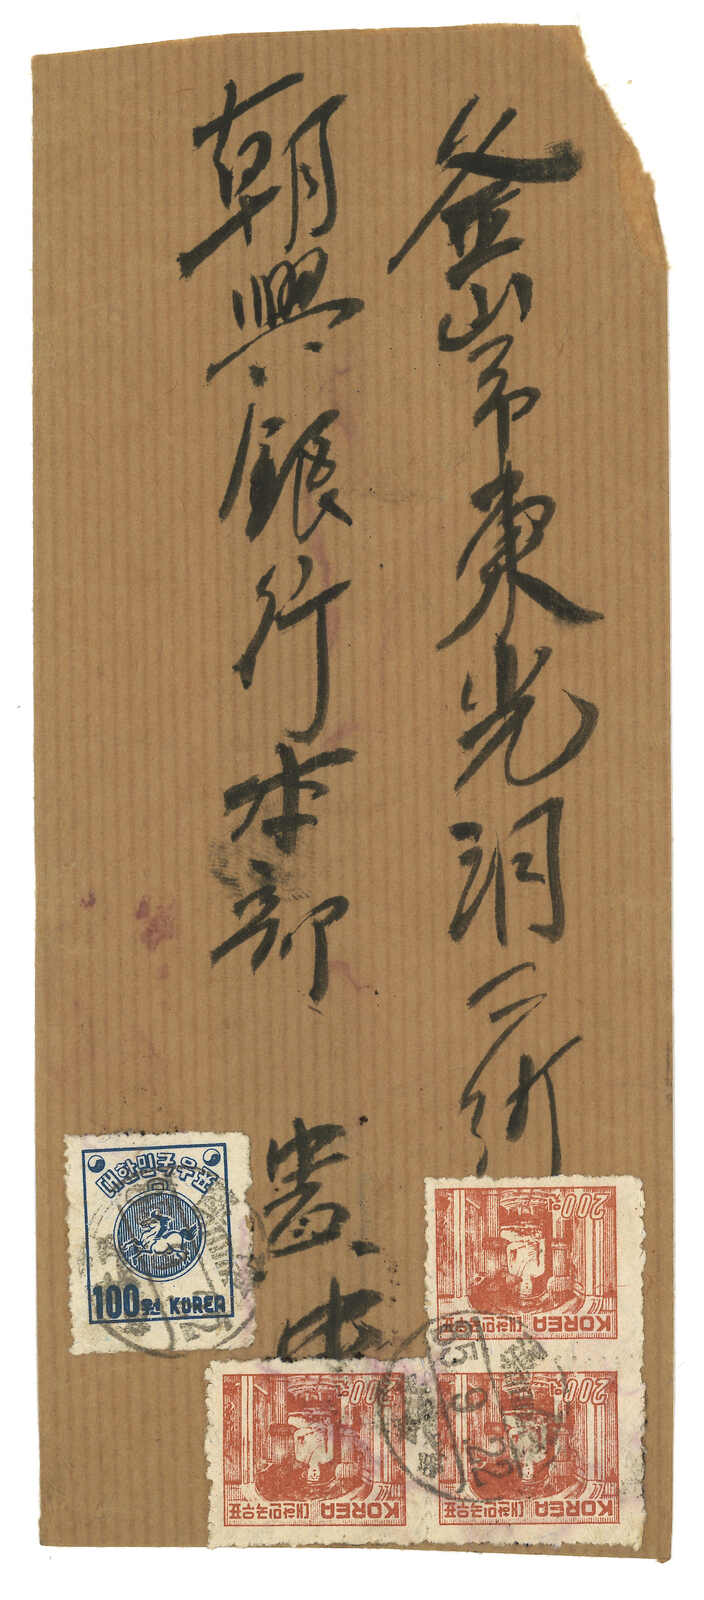 釜山市東光洞二街
朝興銀行本部 貴中
대한민국우표
100원 KOREA
200원
KOREA 대한민국우표
200원
KOREA 대한민국우표
200원
KOREA 대한민국우표
85. 9. 22